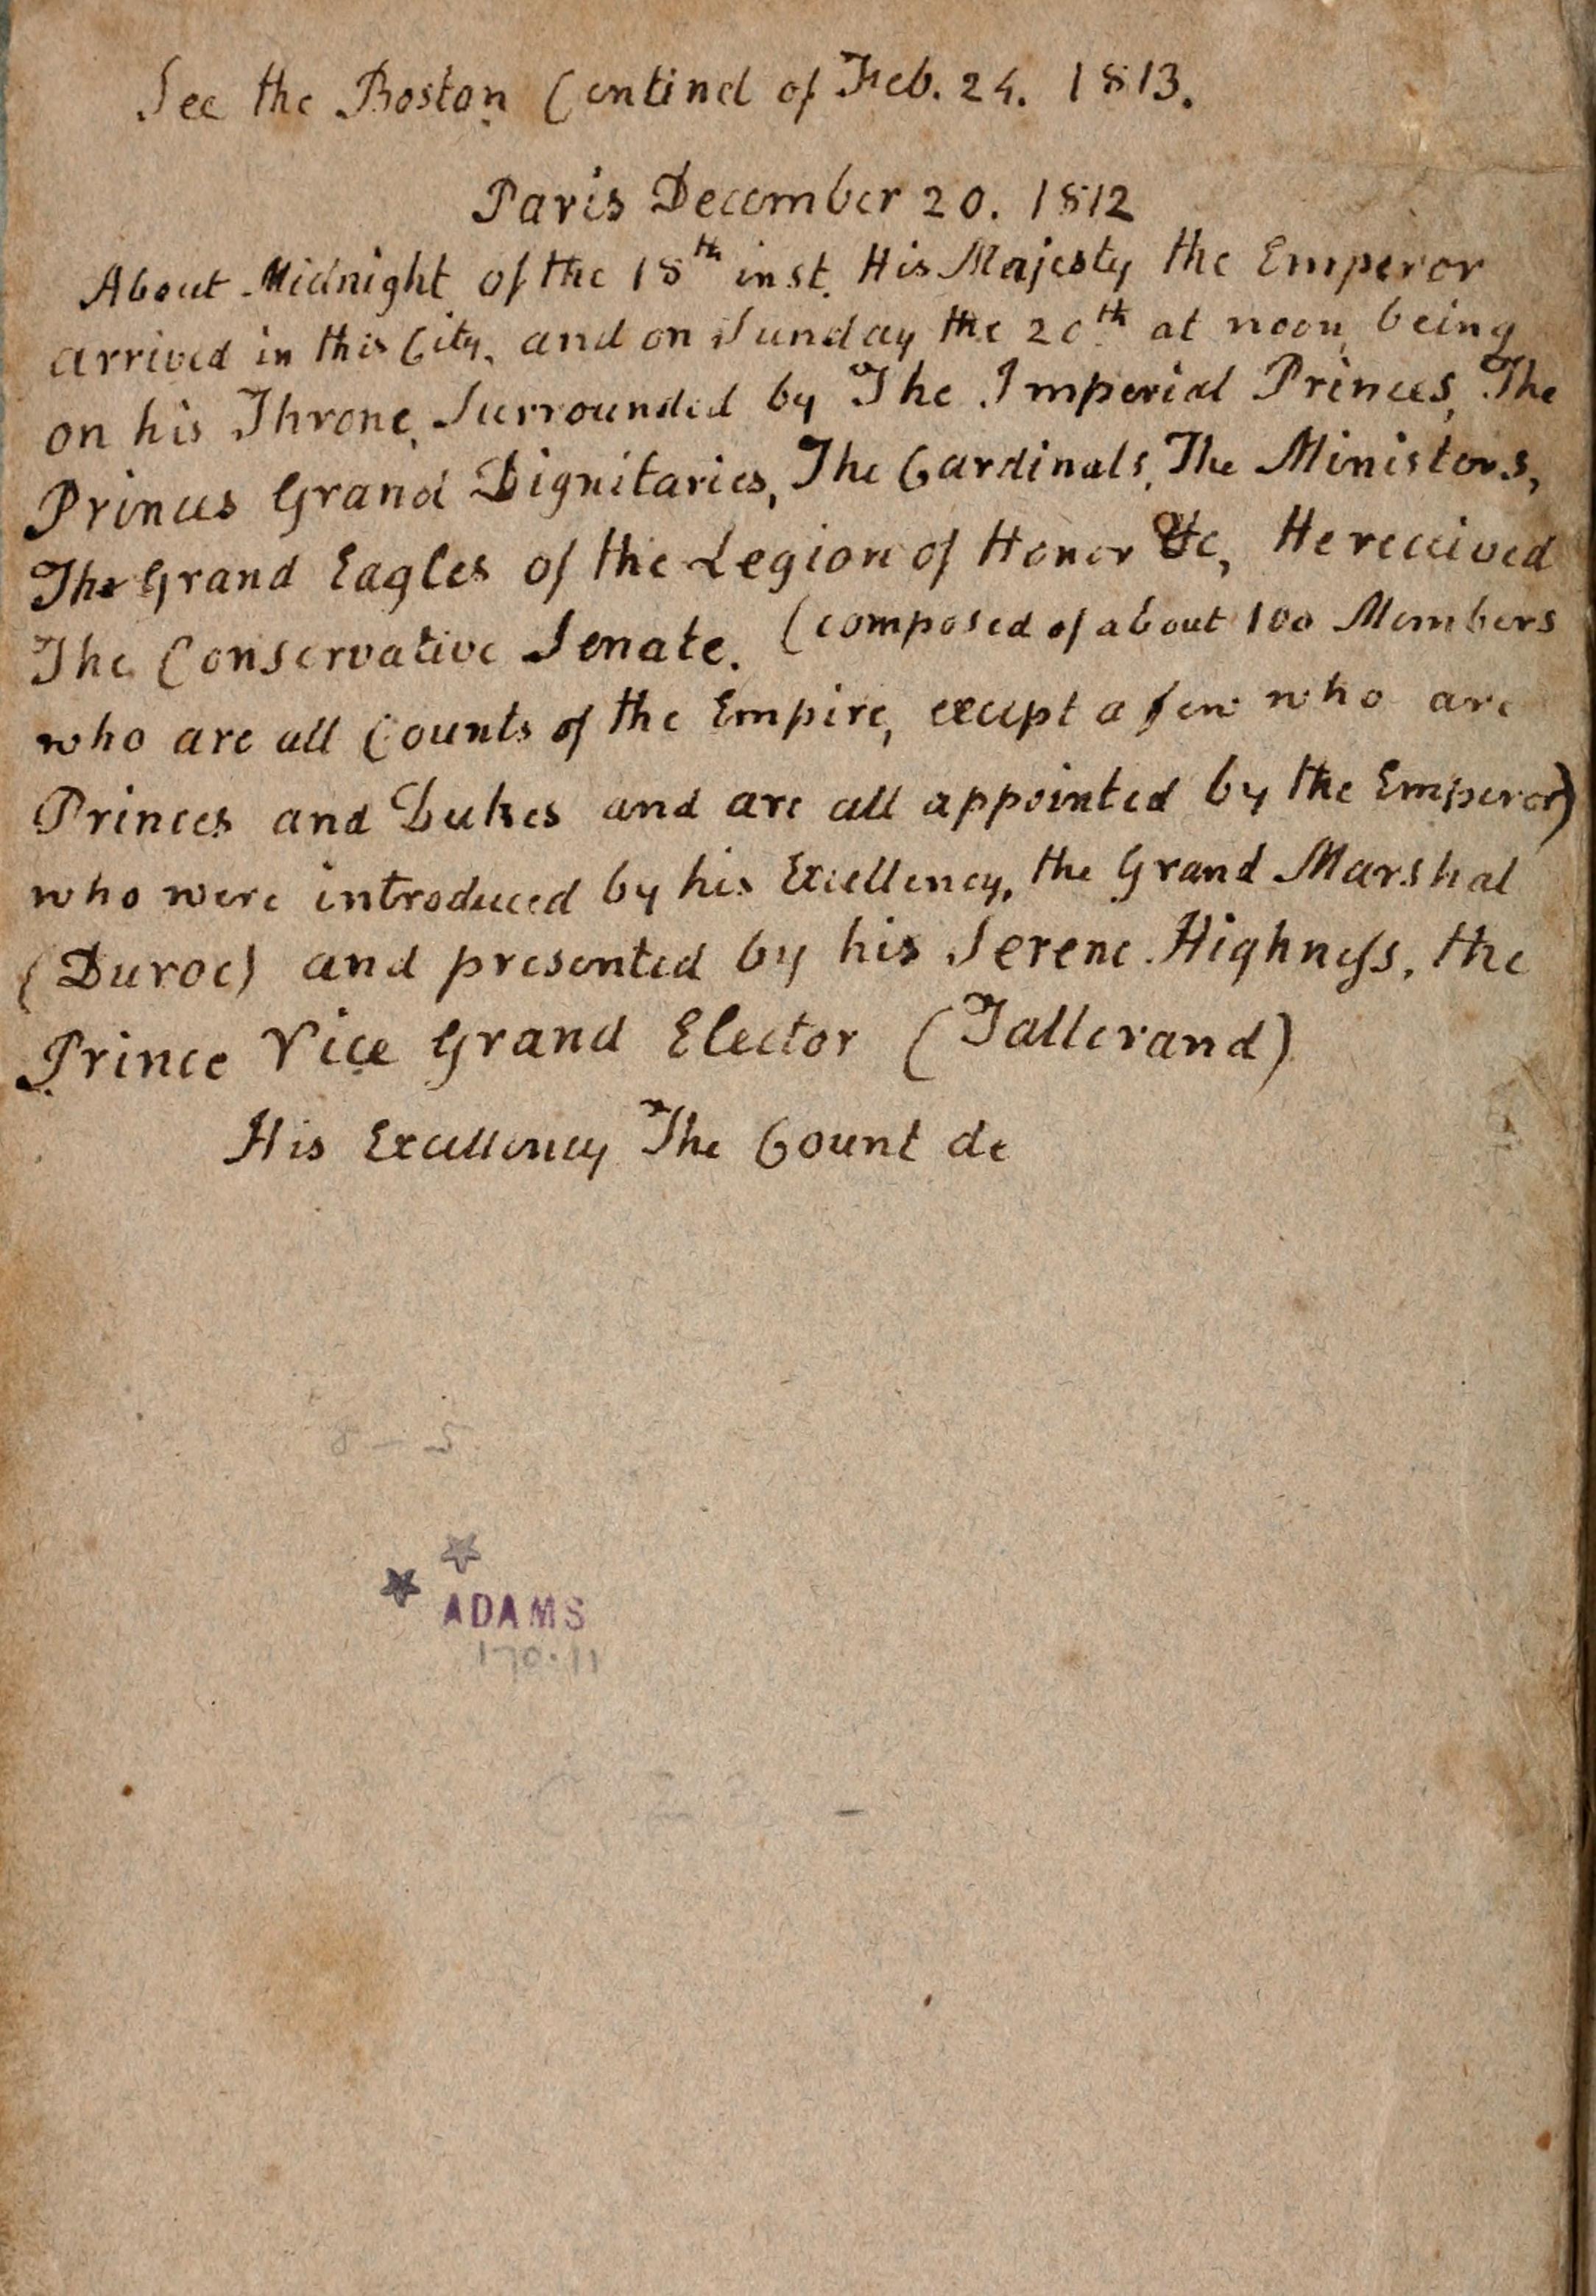 See the Boston Centinel of Feb. 24. 1813.
Paris December 20. 1812
About Midnight of the 18th inst. His Majesty the Emperor
arrived in this City, and on Sunday the 20th at noon, being
on his Throne, Surrounded by The Imperial Princes, The
Princes Grand Dignitaries, The Cardinals, The Ministers,
The Grand Eagles of the Legion of Honor &c, He received
The Conservative Senate. (composed of about 100 Members
who are all Counts of the Empire, except a few who are
Princes and Dukes and are all appointed by the Emperor)
who were introduced by his Excellency, the Grand Marshal
(Duroc) and presented by his Serene Highness, the
Prince Vice Grand Elector (Tallerand)
His Excellency The Count de
ADAMS
170.11